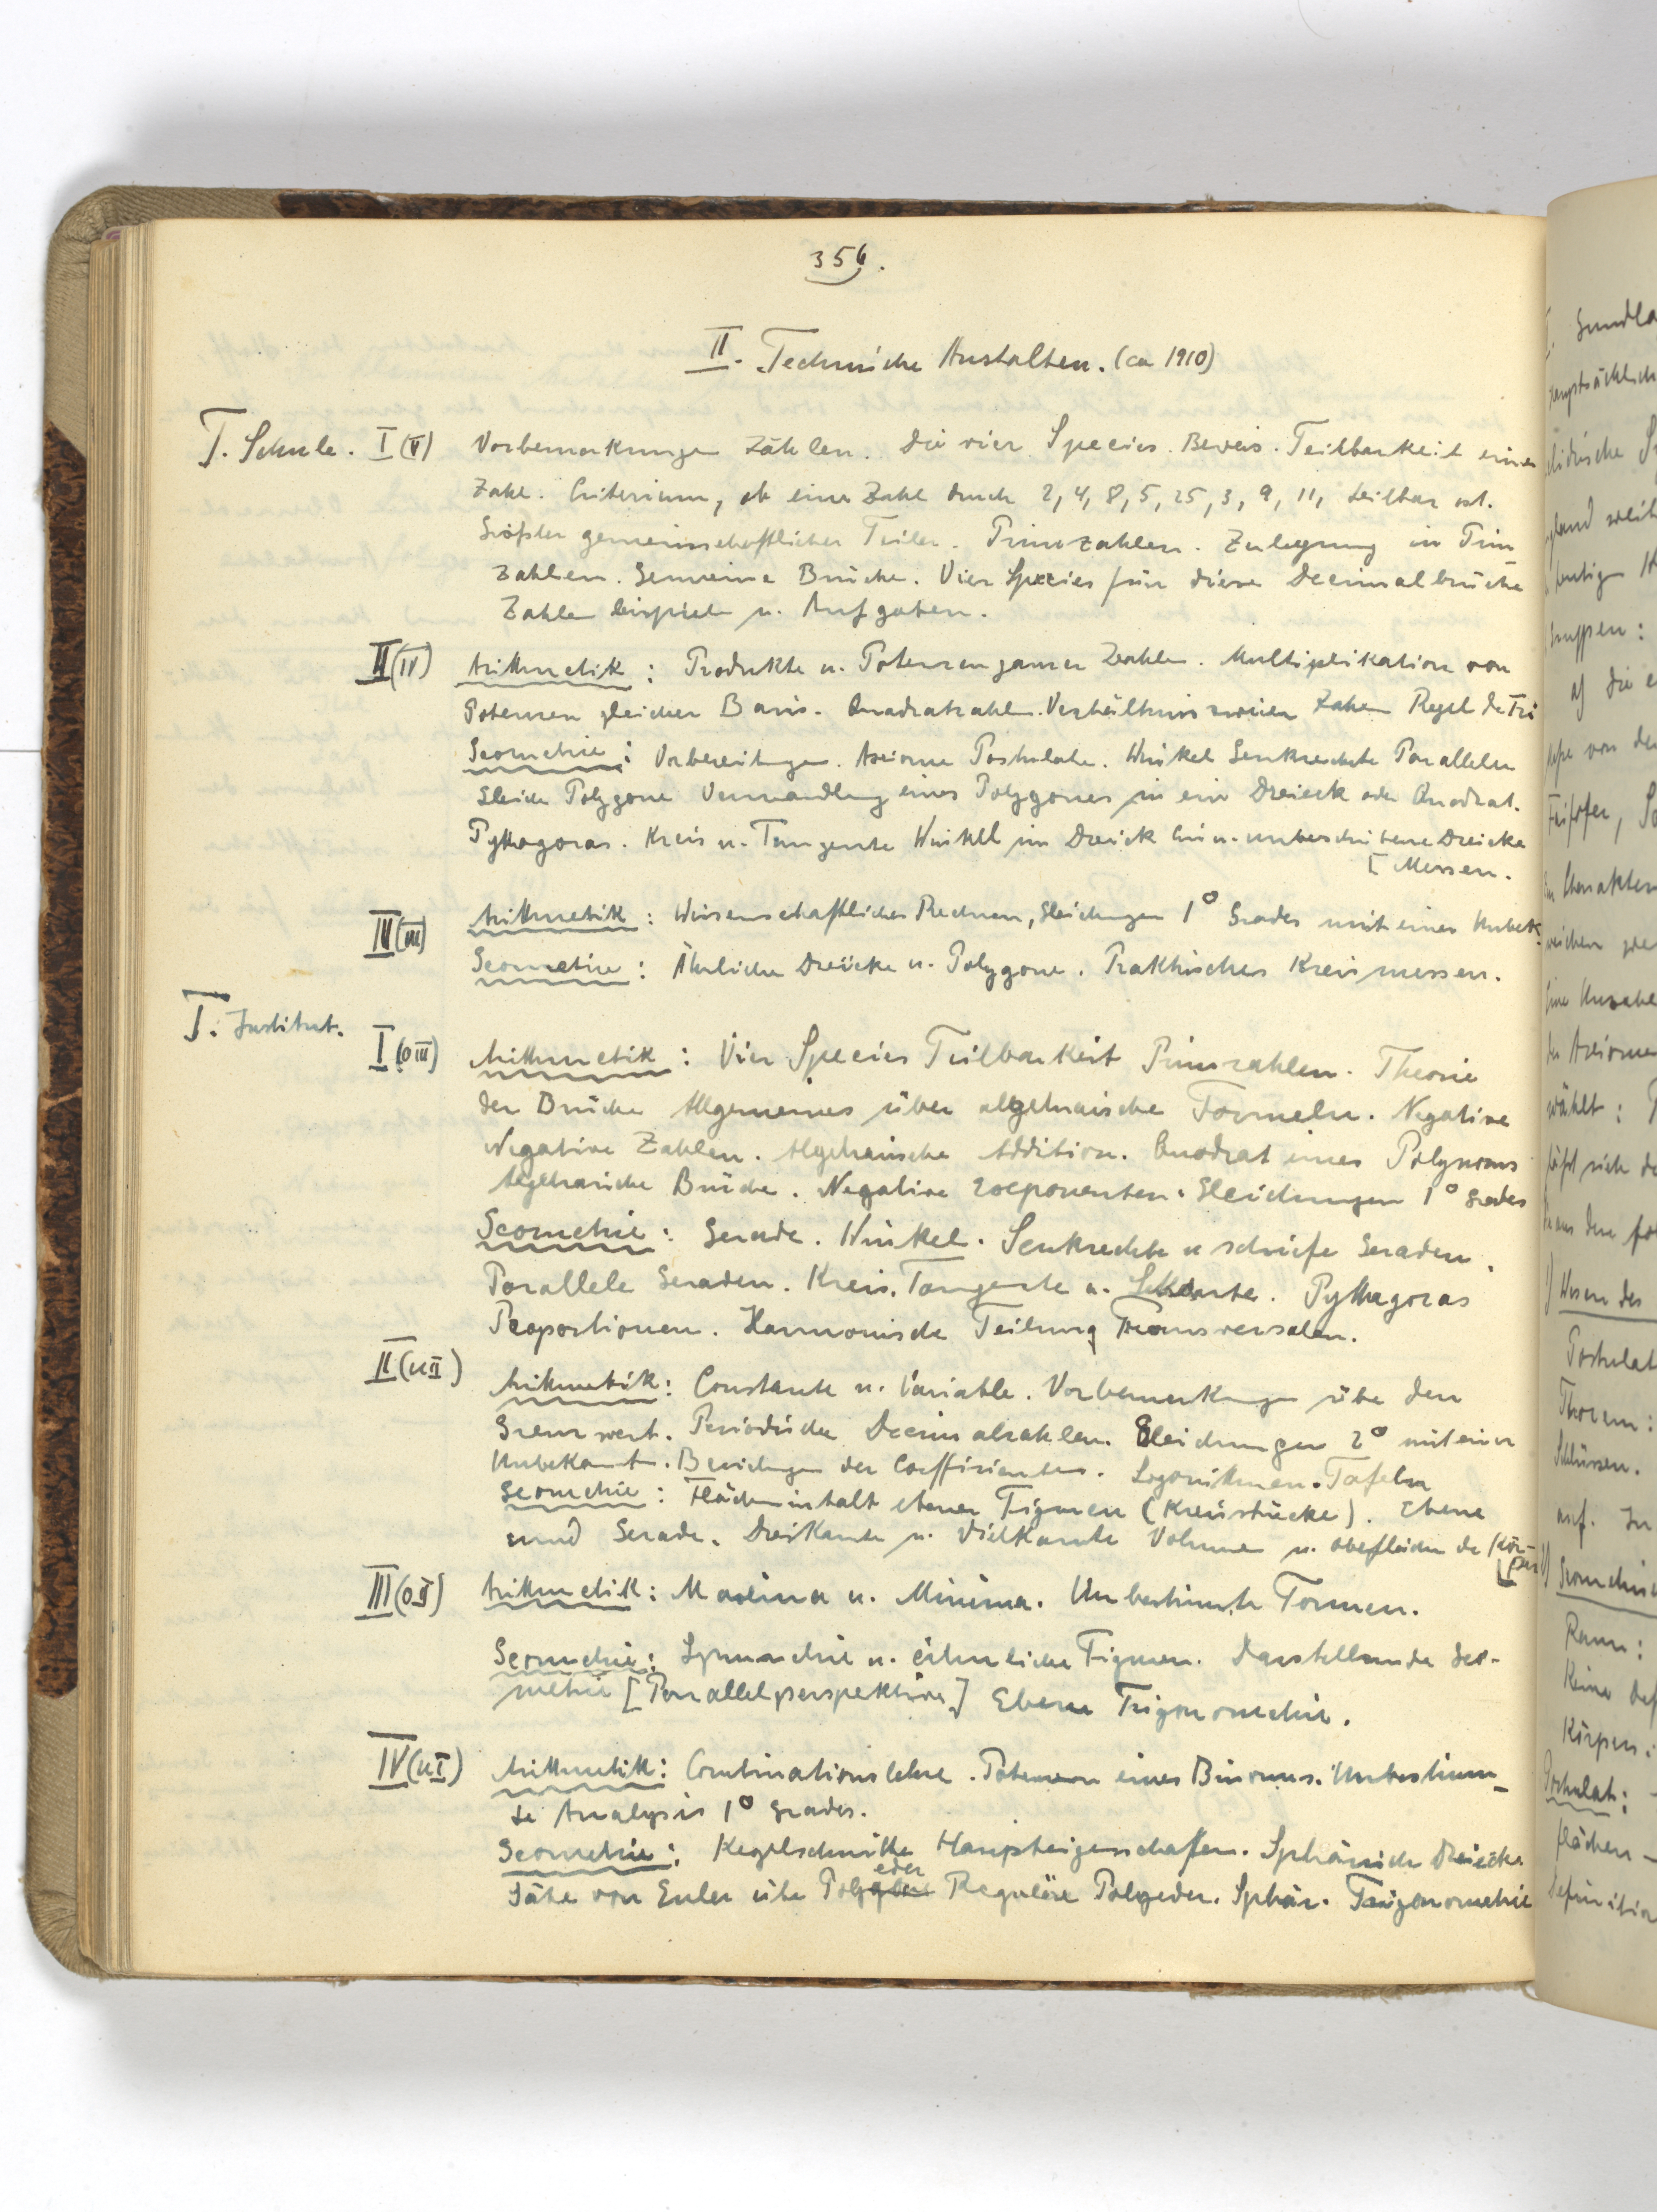 356.
II. Technische Anstalten. (ca 1910)
T. Schule. I (V) Vorbemerkungen Zählen. Die vier Species. Beweis. Teilbarkeit einer
Zahl. Criterium, ob eine Zahl durch 2, 4, 8, 5, 25, 3, 9, 11, teilbar ist.
Größter gemeinschaftlicher Teiler. Primzahlen. Zerlegung in Prim-
zahlen. Gemeine Brüche. Vier Species für diese Decimalbrüche
Zahlenbeispiele u. Aufgaben.
II (IV) Arithmetik: Produkte u. Potenzen ganzer Zahlen. Multiplikation von
Potenzen gleicher Basis. Quadratzahlen. Verhältnis zweier Zahlen Regel de Tri
Geometrie: Vorbereitungen. Axiome Postulate. Winkel Senkrechte Parallelen
Gleiche Polygone Verwandlung eines Polygones in ein Dreieck oder Quadrat.
Pythagoras. Kreis u. Tangente Winkel im Dreieck Ein u. umbeschriebene Dreiecke
[Messen.
III (III) Arithmetik: Wissenschaftliches Rechnen, Gleichungen 1° Grades mit einer Unbek.
Geometrie: Ähnliche Dreiecke u. Polygone. Praktisches Kreismessen.
T. Institut.
I (O III) Arithmetik: Vier Species Teilbarkeit Primzahlen. Theorie
der Brüche Allgemeines über algebraische Formeln. Negative
Negative Zahlen. Algebraische Addition. Quadrat eines Polynoms
Algebraische Brüche. Negative Exponenten. Gleichungen 1° Grades
Geometrie: Gerade. Winkel. Senkrechte u schiefe Geraden.
Parallele Geraden. Kreis. Tangente u. Sekante. Pythagoras
Proportionen. Harmonische Teilung Transversalen.
II (U II) Arithmetik: Constante u. Variable. Vorbemerkungen über den
Grenzwert. Periodische Decimalzahlen. Gleichungen 2° mit einer
Unbekannt. Beziehungen der Coeffizienten. Logarithmen. Tafeln
Geometrie: Flächeninhalt ebener Figuren (Kreisstücke). Ebene
und Gerade. Dreikante u. Vielkante Volumen u. Oberflächen der Kör-
[per
III (O II) Arithmetik: Maxima u. Minima. Unbestimmte Formen.
Geometrie: Symmetrie u. ähnliche Figuren. Darstellende Geo-
metrie [Parallelperspektive] Ebene Trigonometrie.
IV (U I) Arithmetik: Combinationslehre. Potenzen eines Binoms. Unbestimm-
te Analysis 1° Grades.
Geometrie: Kegelschnitte Haupteigenschaften. Sphärische Dreiecke
Sätze von Euler über Polyeder Reguläre Polyeder. Sphär. Trigonometrie